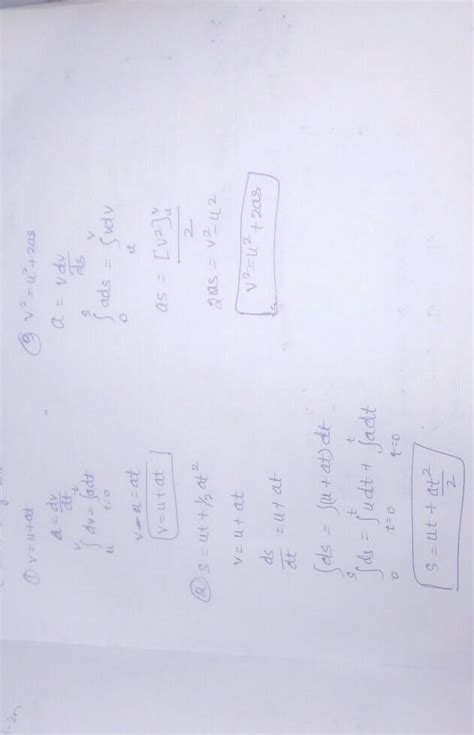 ① v = u + at
a = dv/dt
∫_u^v dv = ∫_{t=0}^t adt
v - u = at
v = u + at
② s = ut + 1/2 at²
v = u + at
ds/dt = u + at
∫ds = ∫(u + at) dt
∫_0^s ds = ∫_{t=0}^t udt + ∫_{t=0}^t adt
s = ut + at²/2
③ v² = u² + 2as
a = v dv/ds
∫_0^s ads = ∫_u^v vdv
as = [v²]_u^v / 2
2as = v² - u²
v² = u² + 2as